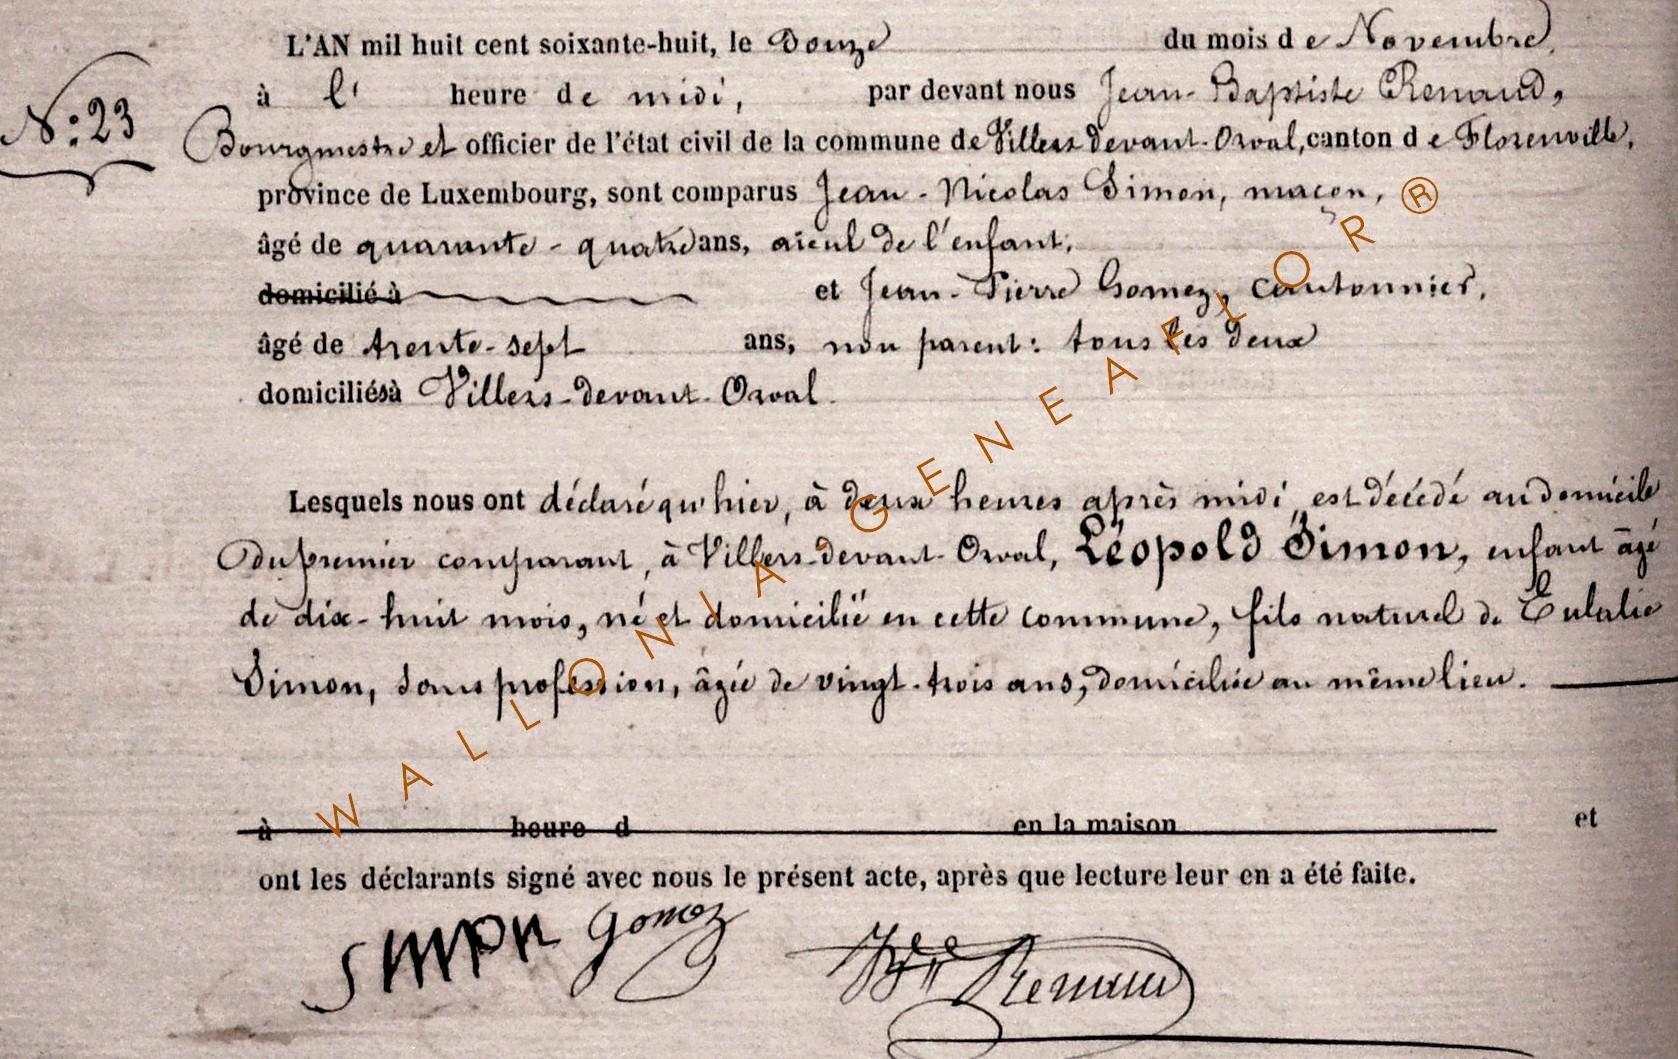 L'AN mil huit cent soixante-huit, le Douze du mois de Novembre,
N.º 23
à l' heure de midi, par devant nous Jean-Baptiste Renaud,
Bourgmestre et officier de l'état civil de la commune de Villers devant-Orval, canton de Florenville,
province de Luxembourg, sont comparus Jean-Nicolas Simon, maçon,
âgé de quarante-quatre ans, aieul de l'enfant,
domicilié à et Jean-Pierre Gomez, cantonnier,
âgé de trente-sept ans, non parent: tous les deux
domiciliés à Villers-devant-Orval.
Lesquels nous ont déclaré qu'hier, à deux heures après midi, est décédé au domicile
du premier comparant, à Villers-devant-Orval, Léopold Simon, enfant âgé
de dix-huit mois, né et domicilié en cette commune, fils naturel de Eulalie
Simon, sans profession, âgée de vingt-trois ans, domiciliée au même lieu.
à heure d en la maison et
ont les déclarants signé avec nous le présent acte, après que lecture leur en a été faite.
Simon Gomez Renaud
WALLONIA-GENEAFLOR®